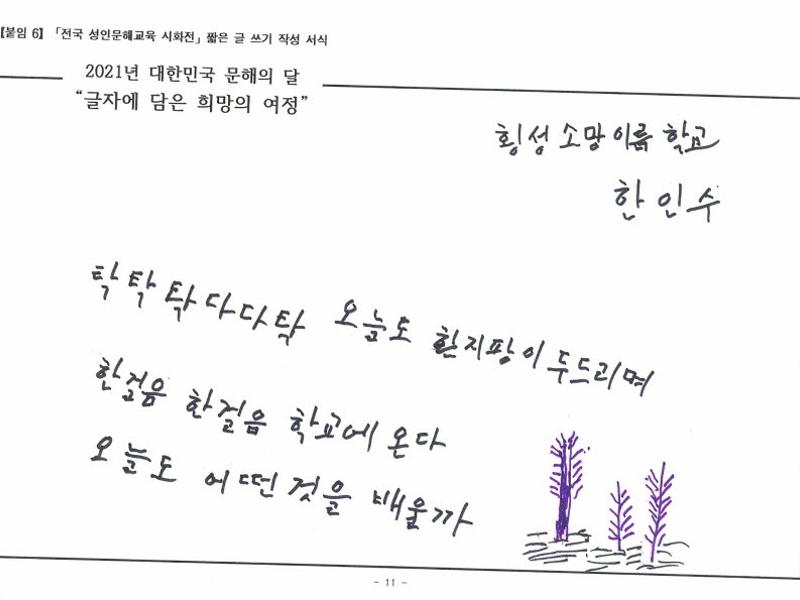 [붙임 6] 「전국 성인문해교육 시화전」 짧은 글 쓰기 작성 서식
2021년 대한민국 문해의 달
“글자에 담은 희망의 여정”
횡성 소망이룸 학교
한인수
탁 탁 탁 다다탁 오늘도 흰지팡이 두드리며
한걸음 한걸음 학교에 온다
오늘도 어떤것을 배울까
- 11 -